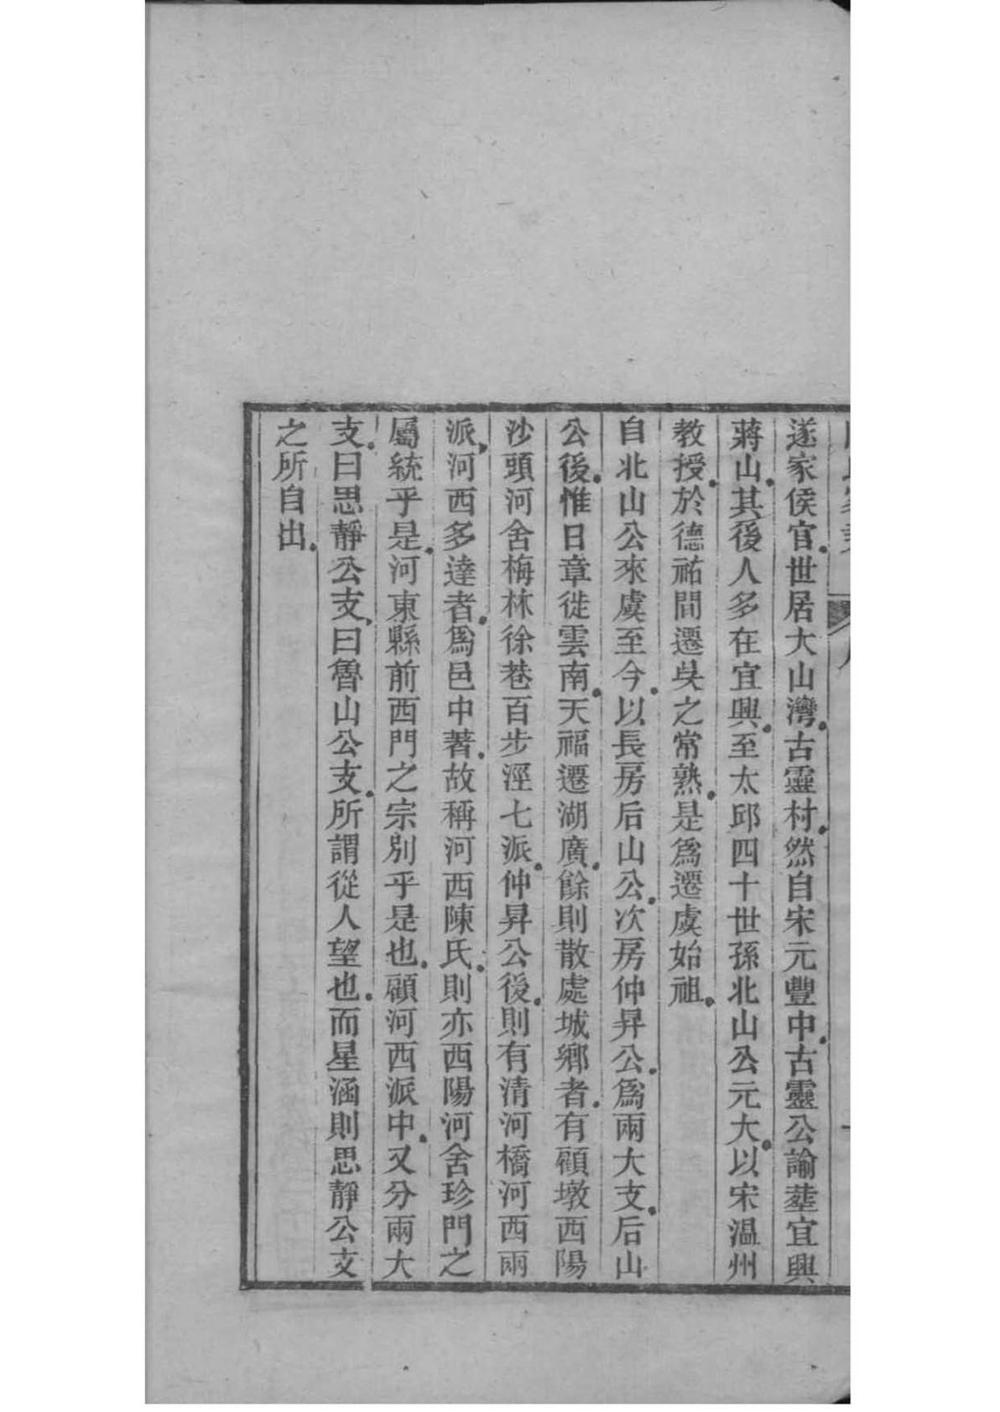 遂家侯官世居大山灣古靈村然自宋元豐中古靈公諭塟宜興
蔣山其後人多在宜興至太邱四十世孫北山公元大以宋溫州
教授於德祐間遷吳之常熟是爲遷虞始祖
自北山公來虞至今以長房后山公次房仲昇公爲兩大支后山
公後惟日章徙雲南天福遷湖廣餘則散處城鄉者有顧墩西陽
沙頭河舍梅林徐巷百步涇七派仲昇公後則有清河橋河西兩
派河西多達者爲邑中著故稱河西陳氏則亦西陽河舍珍門之
屬統乎是河東縣前西門之宗別乎是也顧河西派中又分兩大
支曰思靜公支曰魯山公支所謂從人望也而星涵則思靜公支
之所自出